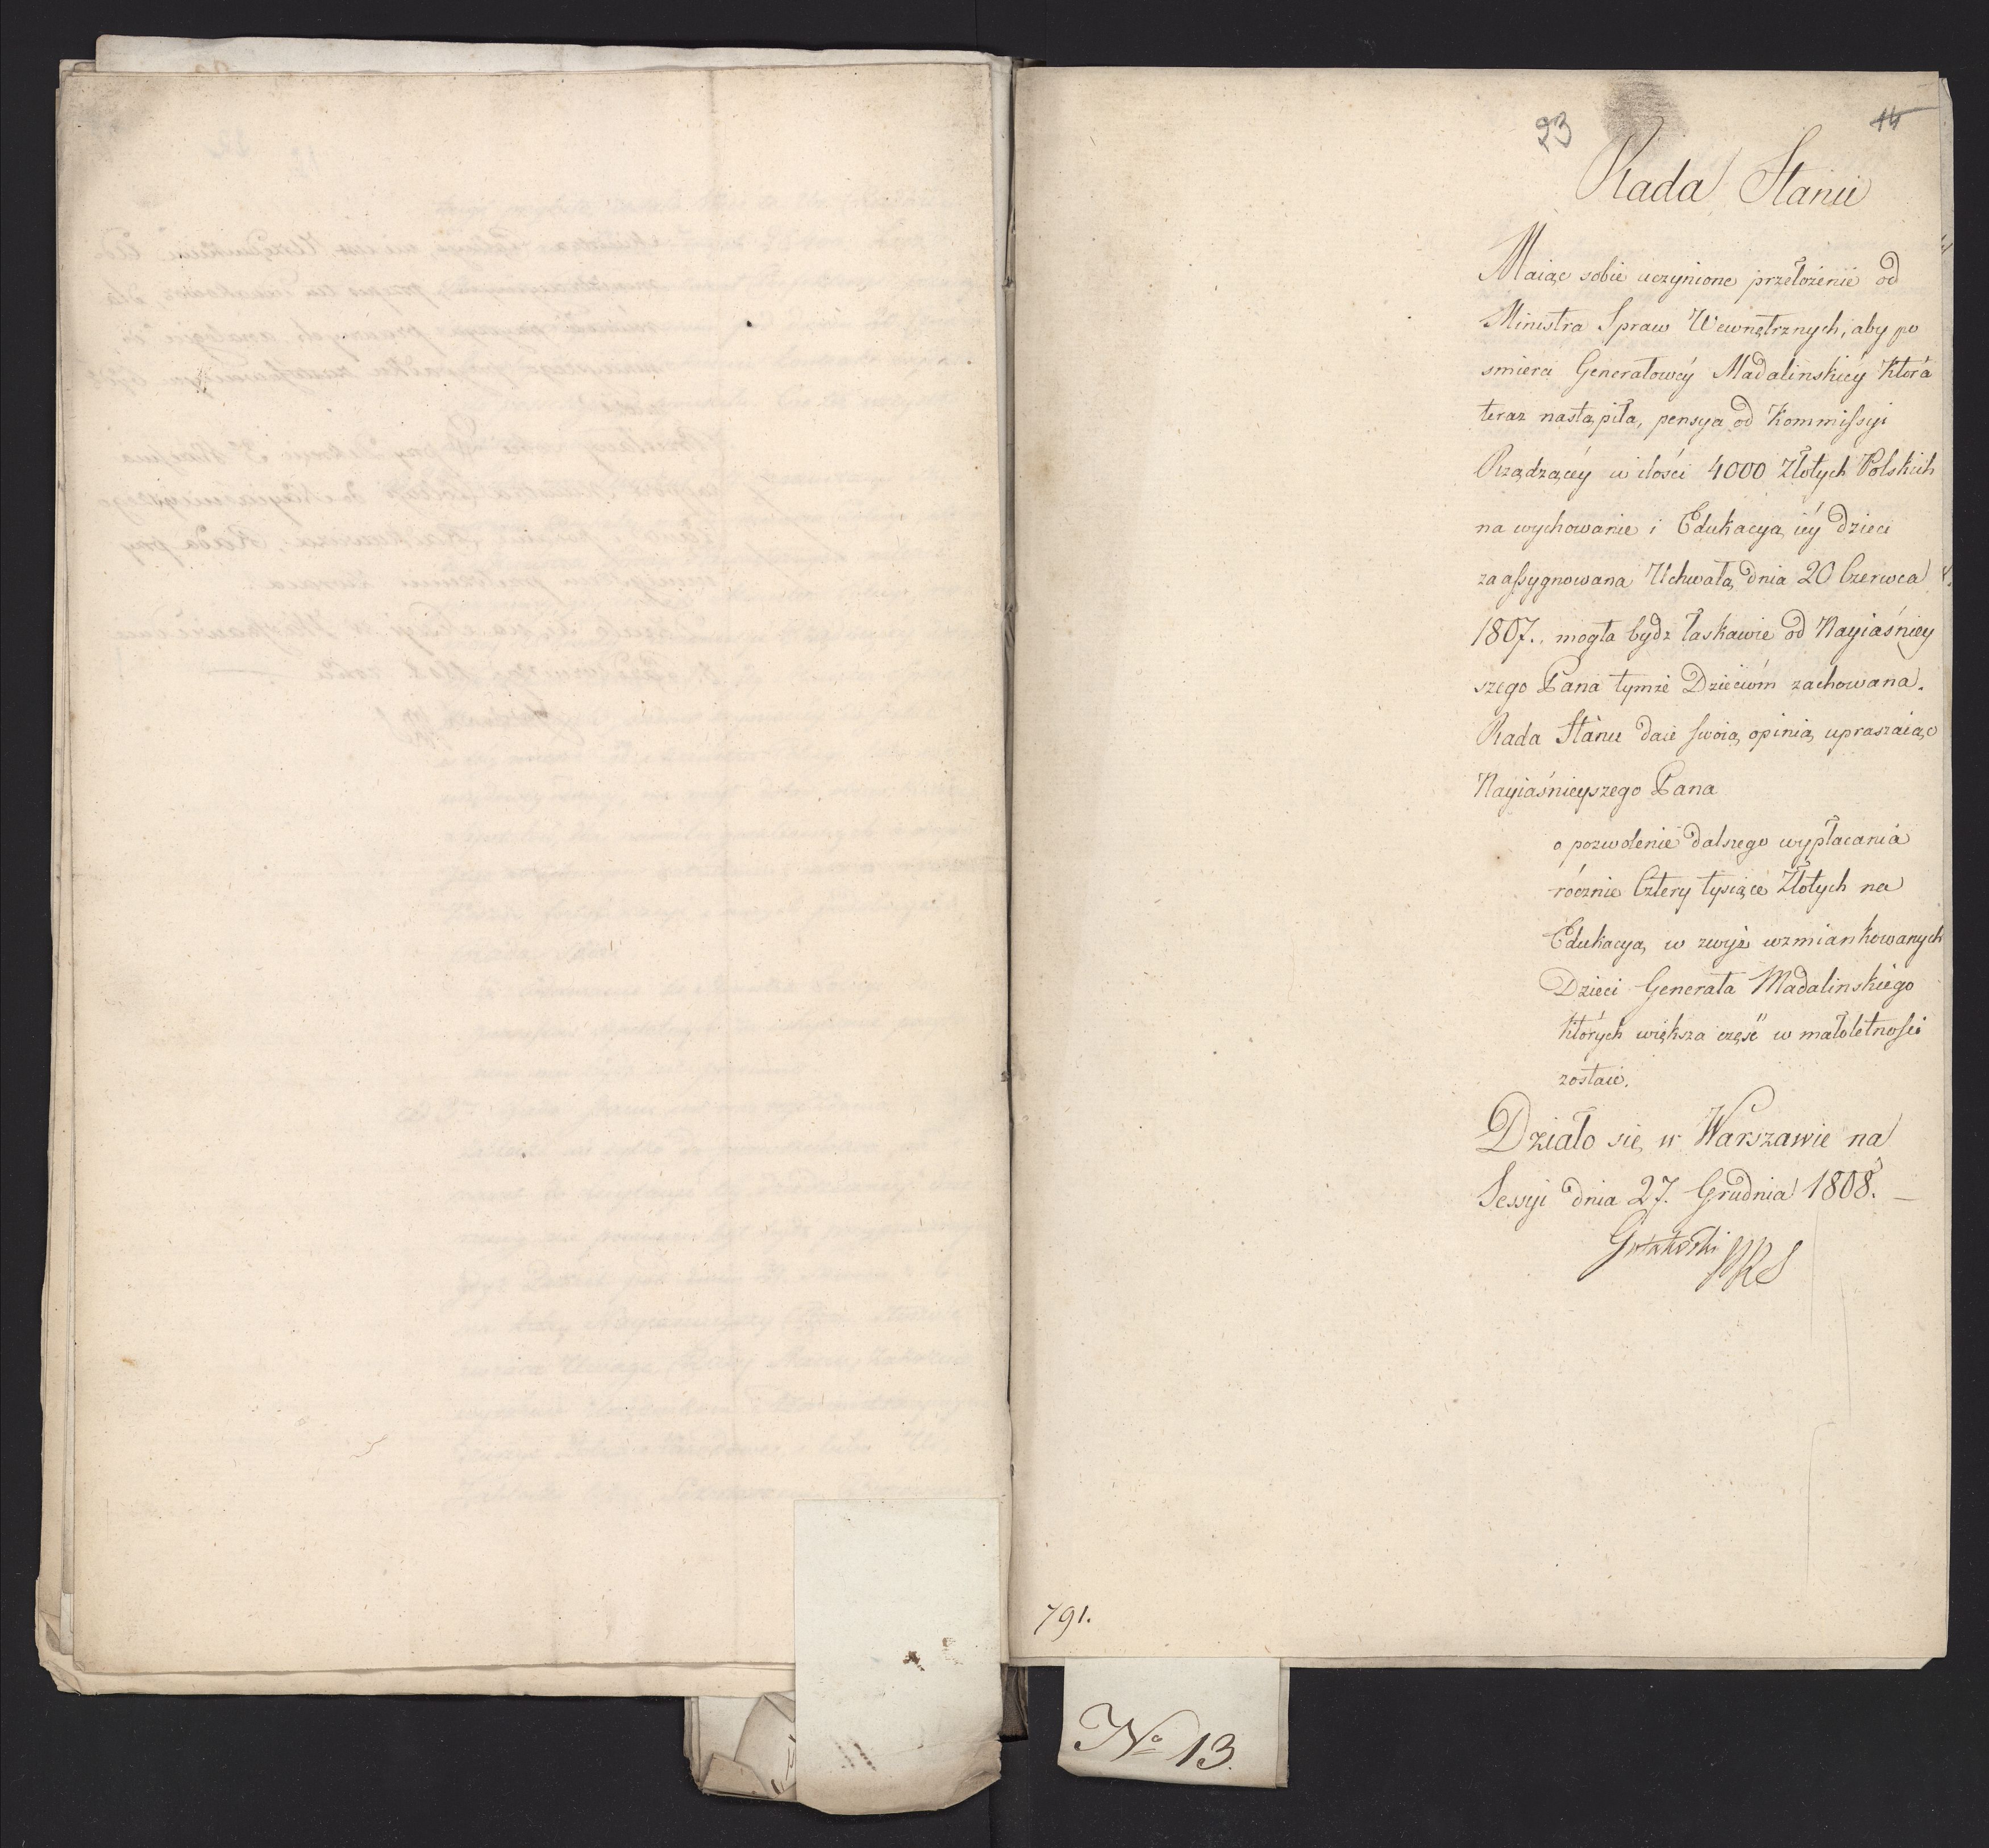 23
14
Rada Stanu
Maiąc sobie uczynione przełożenie od
Ministra Spraw Wewnętrznych, aby po
smierci Generałowéy Madalinskiéy która
teraz nastąpiła, pensya od Kommissyi
Rządzącéy w ilości 4000 Złotych Polskich
na wychowanie i Edukacyą iéy Dzieci
zaassygnowana Uchwałą dnia 20 Czerwca
1807.. mogła bydz łaskawie od Nayiaśniey
szego Pana tymże Dzieciom zachowana.
Rada Stanu daie swoią opinią upraszaiąc
Nayiaśnieyszego Pana
o pozwolenie dalszego wypłacania
rócznie Cztery tysiące Złotych na
Edukacyą w zwyż wzmiankowanych
Dzieci Generała Madalinskiego
których większa część w małoletności
zostaie.
Działo się w Warszawie na
Sessyi dnia 27. Grudnia 1808. —
791.
No 13.